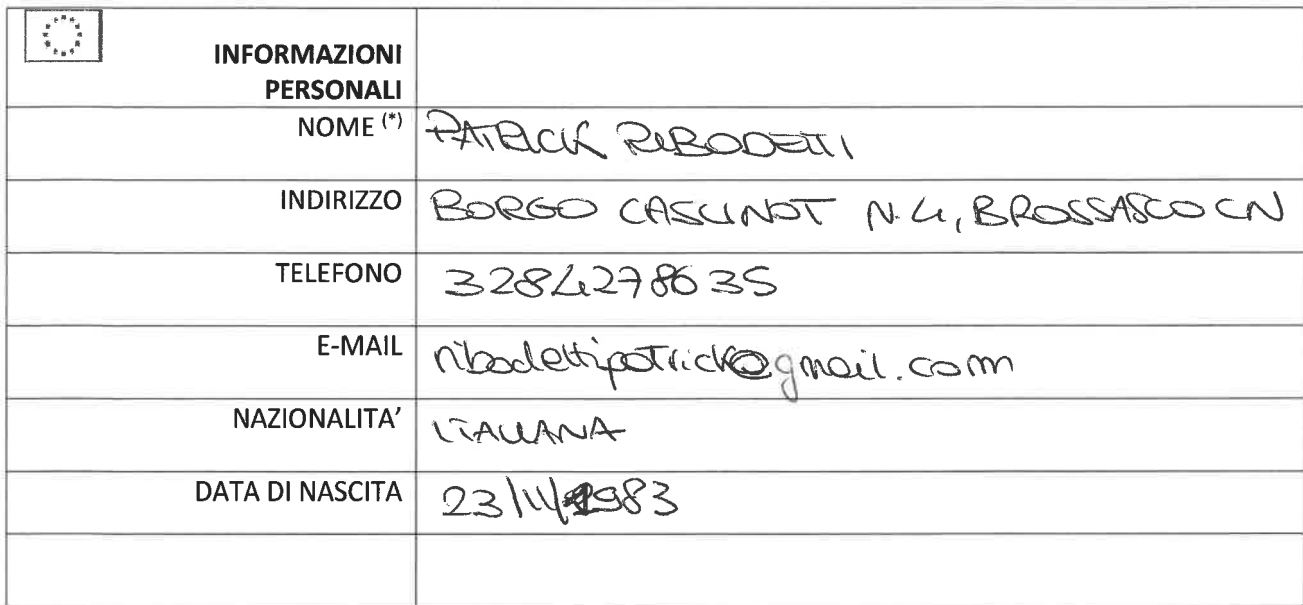 INFORMAZIONI
PERSONALI
NOME (*) PATRICK RIBODETTI
INDIRIZZO BORGO CASCINOT N.4, BROSSASCO CN
TELEFONO 3284278635
E-MAIL ribodettipatrick@gmail.com
NAZIONALITA' ITALIANA
DATA DI NASCITA 23/11/1983